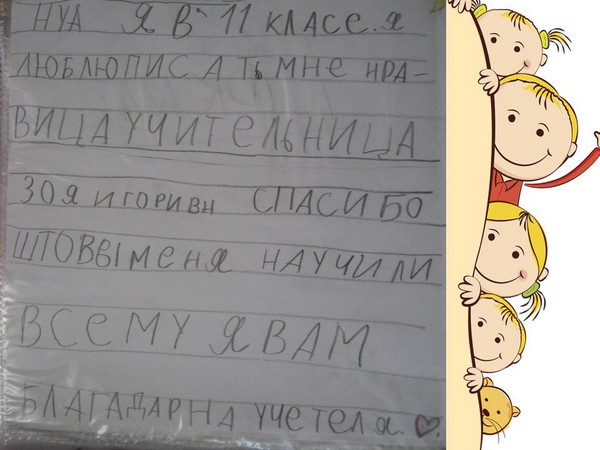 НУА Я В 11 КЛАСЕ. Я
ЛЮБЛЮПИСАТЬ МНЕ НРА-
ВИЦА УЧИТЕЛЬНИЦА
ЗОЯ ИГОРИВН СПАСИБО
ШТОВЫ МЕНЯ НАУЧИЛИ
ВСЕМУ Я ВАМ
БЛАГАДАРНА УЧЕТЕЛЯ.